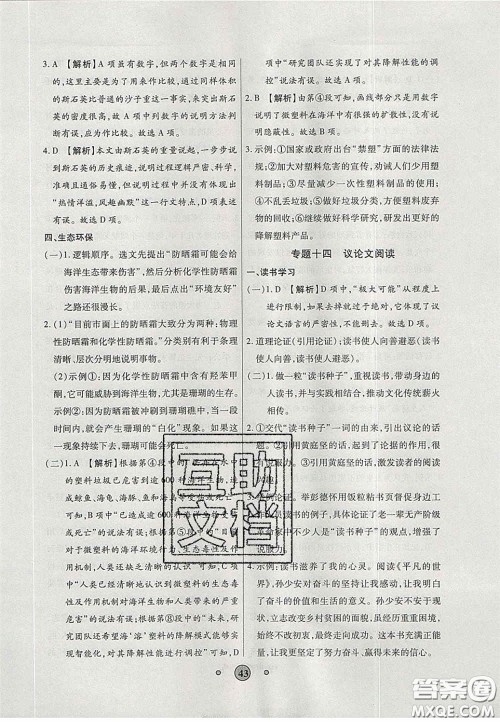 3. A 【解析】A项虽有数字,但两个数字是相同
的,这里主要是为了用来作比较,通过同样体积
的斯石英比普通的沙子重这一事实,来突出斯石
英的密度很大,故A项中对数字的说明方法的理
解有误。故选A项。
4. D 【解析】本文由斯石英的重量说起,一步步说
到斯石英的历史痕迹,说明过程逻辑严密,科学
准确且通俗易懂,但未体现出作者抒发了一种
“热情洋溢,风趣幽默”的文章特点,D项表述有
误。故选D项。
四、生态环保
(一)1. 逻辑顺序。选文先提出“防晒霜可能会给
海洋生态带来伤害”,然后分析化学性防晒霜
伤害海洋生物的后果,最后点出“环境友好”
之路还很漫长。
2. (1)“目前市面上的防晒霜大致分为两种:物理
性防晒霜和化学性防晒霜。”分类别有助于条
理清晰、层次分明地说明事物。
(2)示例①:因为化学性防晒霜中含有羟苯甲
酮,它可直接危害海洋生物,尤其是珊瑚的生存。
示例②:防晒霜被冲刷到珊瑚礁上,一段时
间内,就会产生珊瑚的“白化”现象。如果这一
现象持续下去,珊瑚可能会死亡。
(二)1. A 【解析】根据第
的塑料垃圾已危害到逾600种海洋生物,
成鲸鱼、海兔、海豚、鱼
说“已造成逾600种海洋生
或死亡”的说法有误;
对于微塑料的海洋环境行为、生态毒性及作
用机制,人类还没有清晰的认识”可知,C项中
“人类已经清晰地认识到微塑料的生态毒性
以及将对海洋生物和人类带来的严重的严重
危害”的说法有误;根据第⑧段中“未来,研究
团队还希望海‘溶’塑料的降解模式能够实
现智能化,对其降解性能进行调控”可知,D
项中的“研究团队还实现了对其降解性能的调
控”说法有误。故选A项。
2. B 【解析】由第④段可知,画线部分只是用数字
说明了微塑料在海洋中有很强的扩散性,没有说
明其危害性。故选B项。
3. 示例:①国家或政府出台“禁塑”方面的法律法
规;②加大对塑料危害的宣传,劝诫人们少用塑料
制品;③提高塑料生产标准,多生产可降解塑料;
④不乱丢垃圾;⑤做好垃圾分类,做好塑料回收与
再利用;⑥继续做好科学研究,研发出更好的可
降解塑料产品。
专题十四 议论文阅读
一、读书学习
(一)1. D 【解析】D项中,“极大可能”是对程度上
进行的限制,如果去掉就过于绝对,它体现了议
论文语言的严密性,不能删去。故选D项。
2. 道理论证(引用论证);读书使人向善避恶(或:读
书使人向善,读书使人避恶)。
(二)1. 做一粒“读书种子”,重视读书,带动身边的
人读书,共同参与到阅读中来,推动文化传统薪火
相传。
2. ①交代“读书种子”一词的由来,引出议论的话
题;②引用黄庭坚的话,点明读书的重要
③引用黄庭坚的话,激发读者的阅读
3. 举例论证。举彭德怀不用银粘粘书页督促身边工
作人员
革命家不中不只“读书种子”的观点,增强了
说服力。
4. 示例:读书滋养了我的心灵。阅读《平凡的世
界》,孙少安对奋斗的坚持让我感动,也让我明白
了奋斗的价值和意义。孙少安、孙少平兄弟在改
变生活、改变乡村贫困面貌的过程中,面对重重困
难始终不改初衷,最终走向成功,实现理想。这
本书让我坚定了努力奋斗、赢得未来的信心。
43
互助
文档
答案圈
MXQE.COM